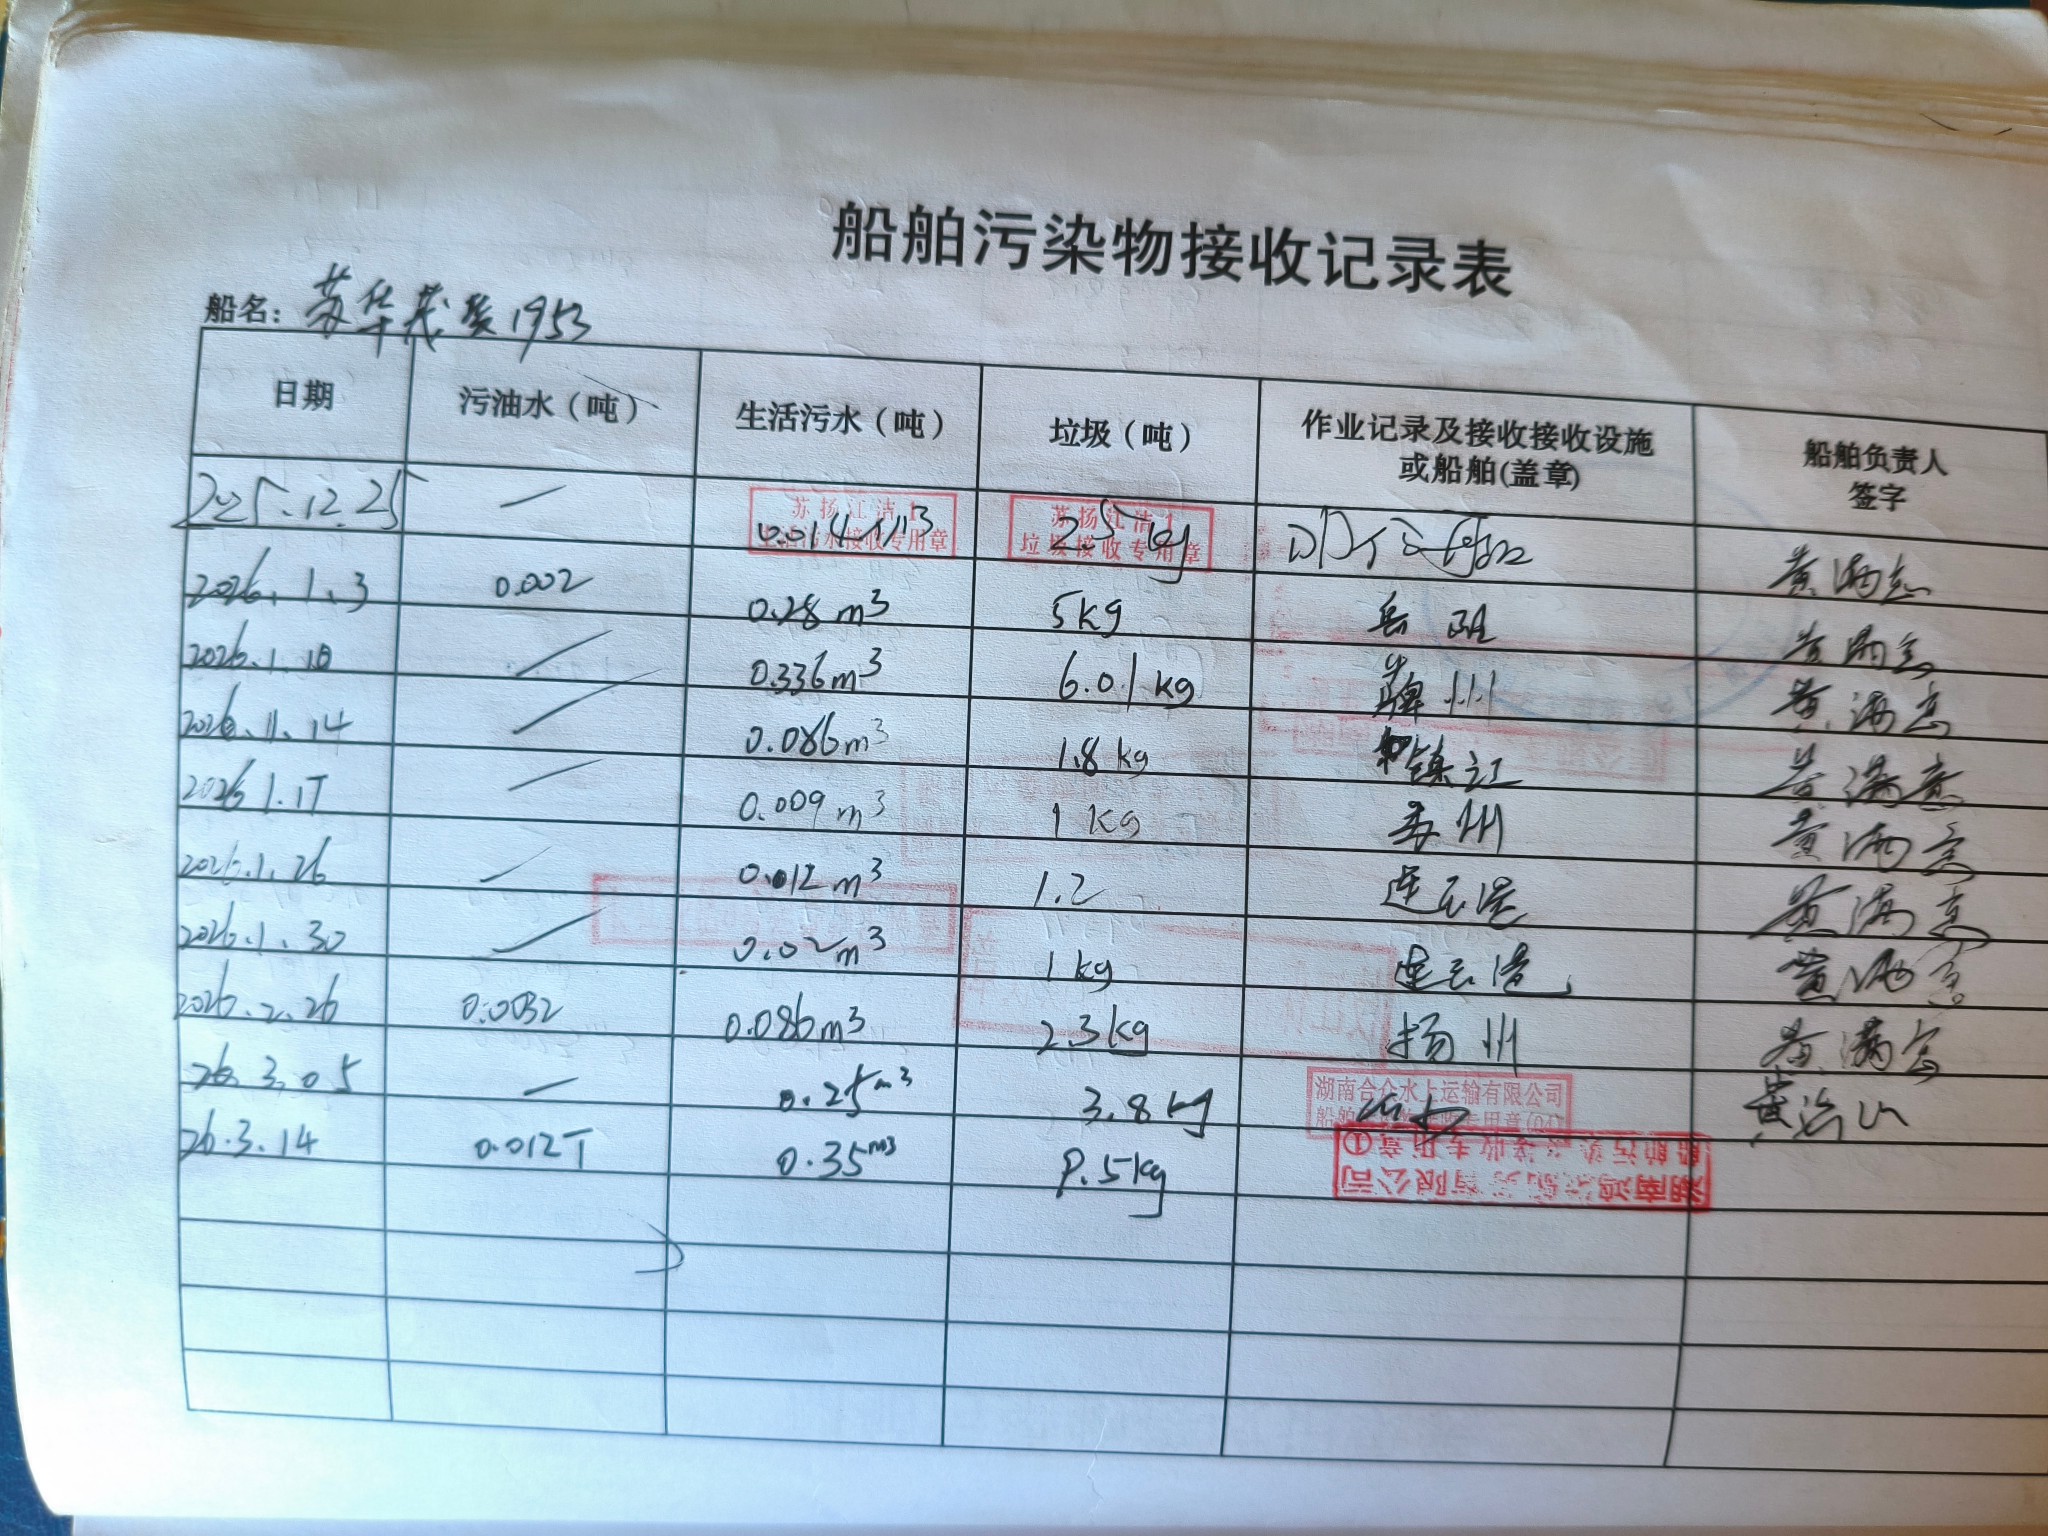 船舶污染物接收记录表
船名：苏华茂货1953
日期 污油水（吨） 生活污水（吨） 垃圾（吨） 作业记录及接收接收设施或船舶(盖章) 船舶负责人签字
2025.12.25 — 0.014 m3 2.5 kg
苏扬江洁1
生活污水接收专用章
苏扬江洁1
垃圾接收专用章
2026.1.3 0.002 0.28 m3 5kg 岳阳
2026.1.10 / 0.336m3 6.01kg 州
2026.1.14 / 0.086m3 1.8kg 镇江
2026.1.17 / 0.009m3 1kg 苏州
2026.1.26 / 0.012m3 1.2 连云港
2026.1.30 / 0.02m3 1kg 连云港
2026.2.26 0.0032 0.086m3 2.3kg 扬州 黄满
26.3.05 — 0.25m3 3.8kg
湖南合众水上运输有限公司
26.3.14 0.012T 0.35m3 .5kg
船舶污染 接收专用章①
湖南鸿 有限公司